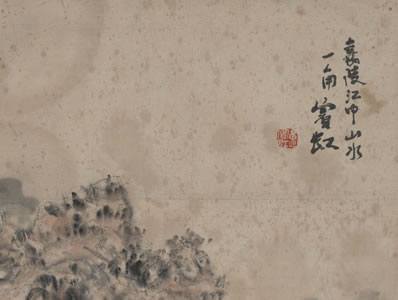 嘉陵江中山水
一角賓虹